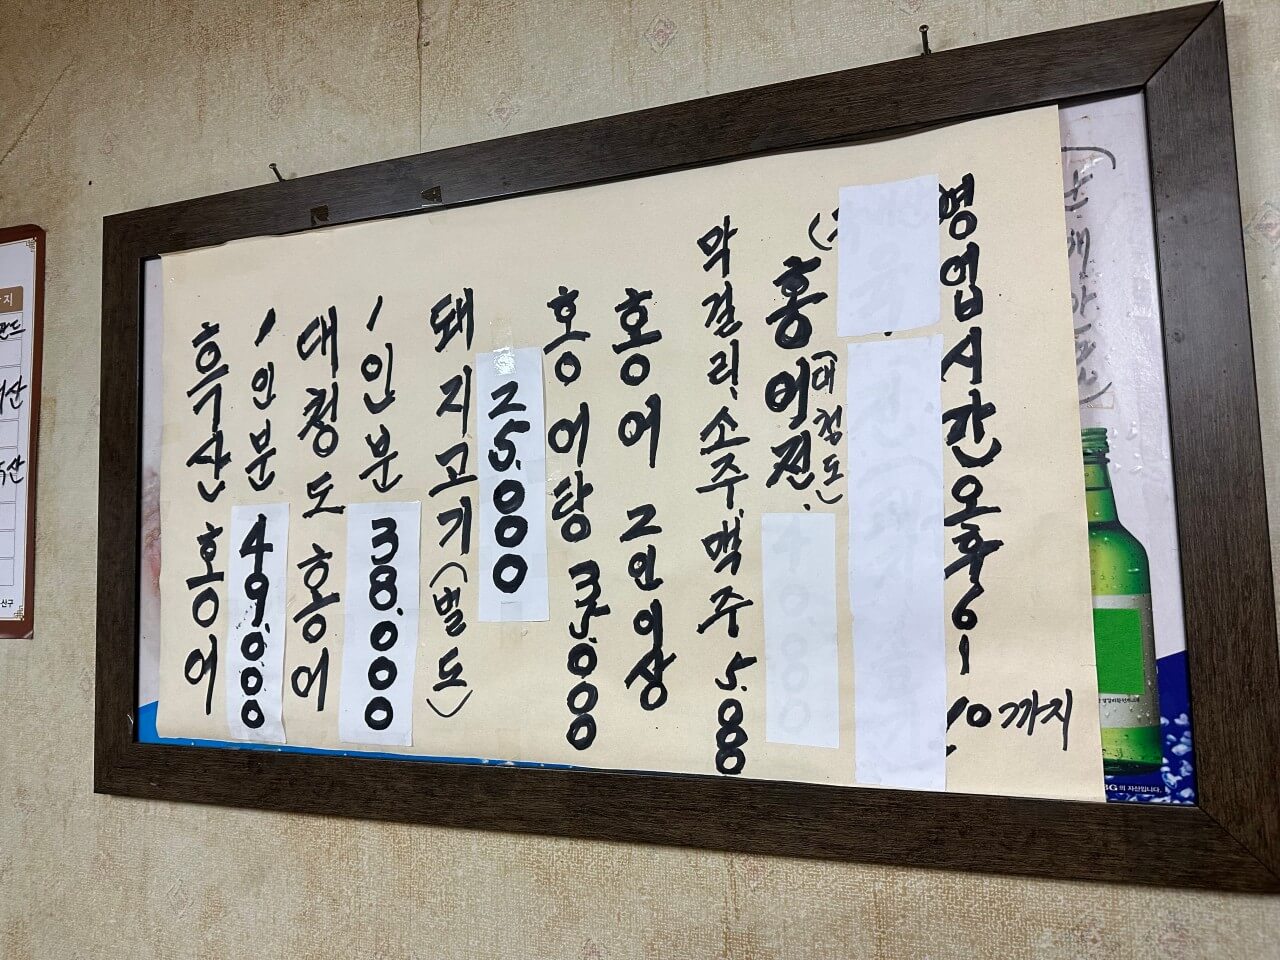 흑산 홍어
1인분 49.000
대청도 홍어
1인분 38.000
돼지고기(별도)
25.000
홍어탕 35.000
홍어 2인이상
막걸리.소주.맥주 5.000
홍어전
(대청도)
영업시간오후6~10까지